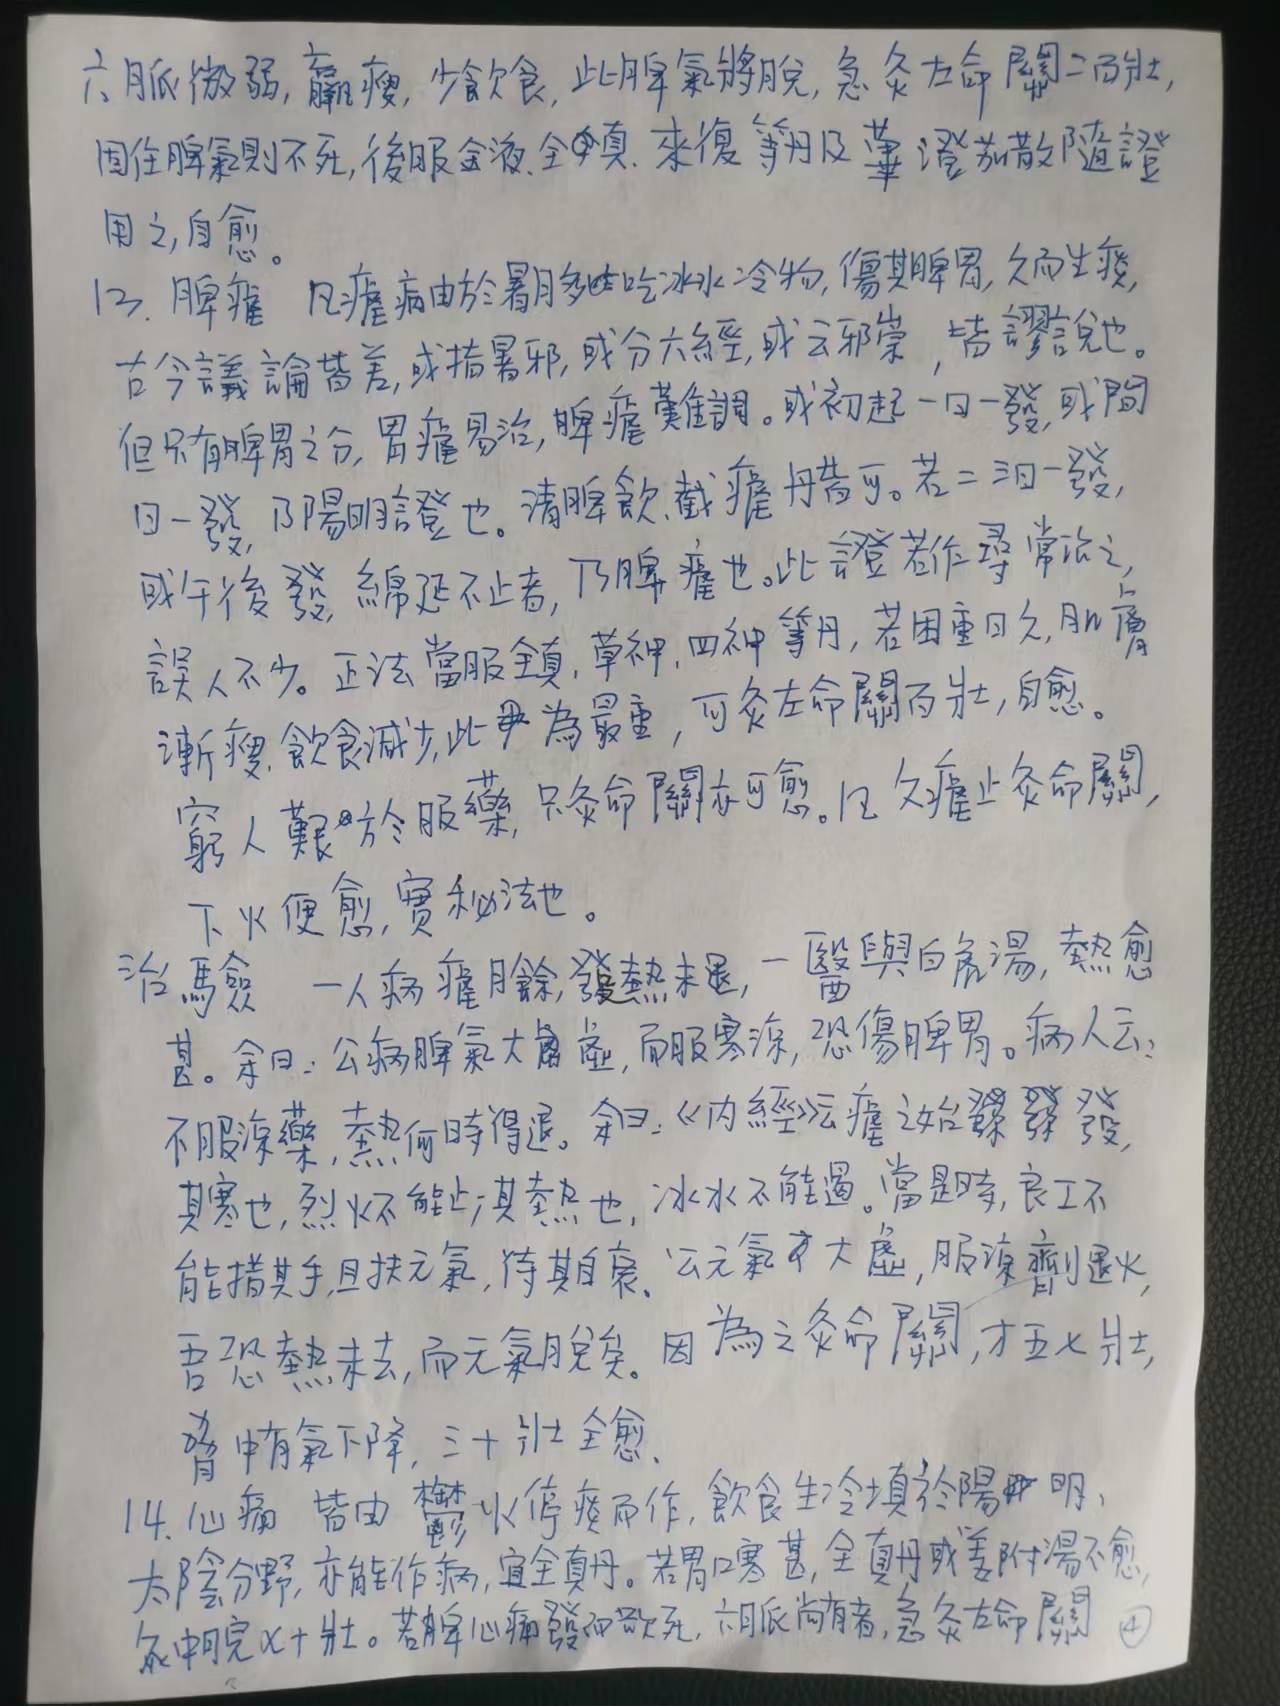 六脈微弱,羸瘦,少飲食,此脾氣將脫,急灸左命關二百壯,
固住脾氣則不死,後服金液、全真、來復等丹及蓽澄茄散隨證
用之,自愈。
13. 脾瘧 凡瘧病由於暑月多吃冰水冷物,傷其脾胃,久而生痰,
古今議論皆差,或指暑邪,或分六經,或云邪崇,皆謬說也。
但只有脾胃之分,胃瘧易治,脾瘧難調。或初起一日一發,或間
日一發,乃陽明證也。清脾飲、截瘧丹皆可。若二三日一發,
或午後發,綿延不止者,乃脾瘧也。此證若作尋常治之,
誤人不少。正法當服全真、草神、四神等丹,若困重日久,肌膚
漸瘦,飲食減少,此為最重,可灸左命關百壯,自愈。
窮人艱於服藥,只灸命關亦可愈。凡久瘧止灸命關,
下火便愈,實秘法也。
治驗 一人病瘧月餘,發熱未退,一醫與白虎湯,熱愈
甚。余曰:公病脾氣大虛,而服寒涼,恐傷脾胃。病人云:
不服涼藥,熱何時得退。余曰:《內經》云瘧之始發,
其寒也,烈火不能止;其熱也,冰水不能遏。當是時,良工不
能措其手,且扶元氣,待其自衰。公元氣大虛,服涼劑退火,
吾恐熱未去,而元氣脫矣。因為之灸命關,才五七壯,
脅中有氣下降,三十壯全愈。
14. 心痛 皆由鬱火停痰而作,飲食生冷填於陽明、
太陰分野,亦能作病,宜全真丹。若胃口寒甚,全真丹或姜附湯不愈,
灸中脘七十壯。若脾心痛發而欲死,六脈尚有者,急灸左命關 ④